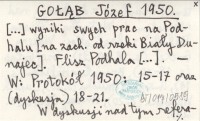 GOŁĄB Józef 1950.
[...] wyniki swych prac na Pod-
halu [na zach. od rzeki Biały Du-
najec]. Flisz Podhala [...]. —
W: Protokół 1950: 15-17 oraz
(dyskusja) 18-21.
W dyskusji nad tym refera-